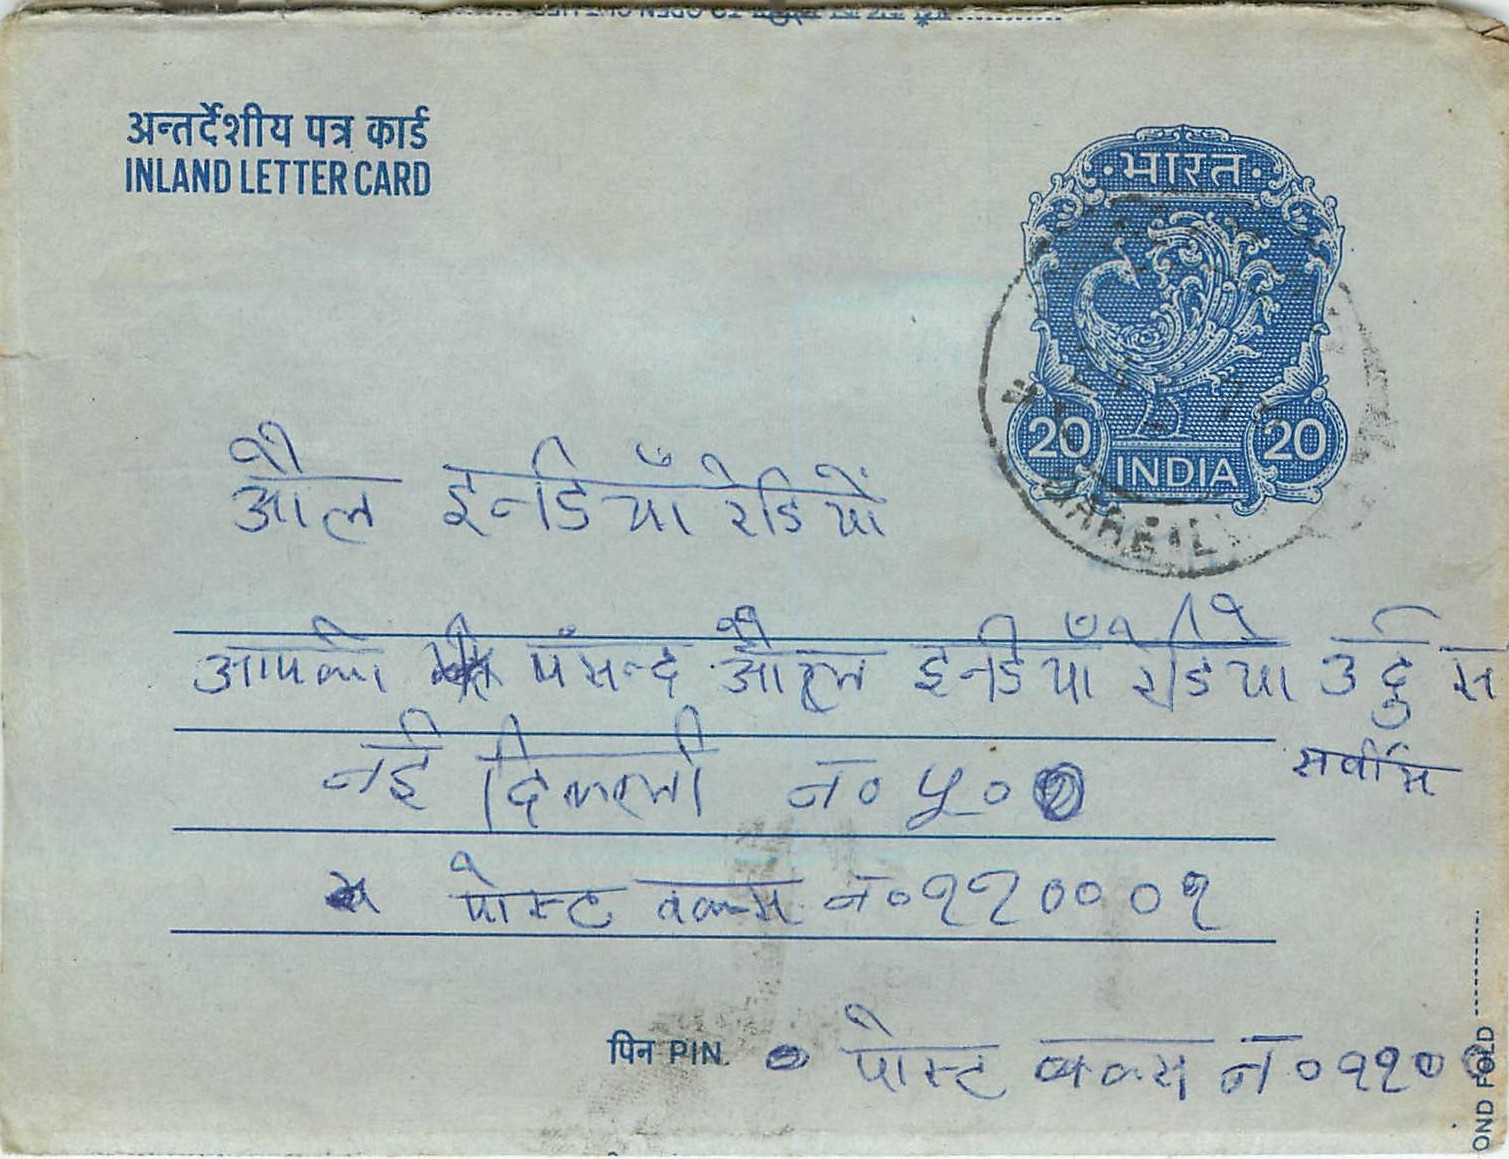 अन्तर्देशीय पत्र कार्ड
INLAND LETTER CARD
भारत
20 20
INDIA
BAREILLY
औल इनडियाँ रेडियों
आपकी पँसन्द औल इनडियाँ रेडियो उर्दु स
र्वीस
नई दिल्ली न० ५०
पोस्ट वक्स न० ११०००१
पिन PIN पोस्ट वक्स न० ११०
OND FOLD